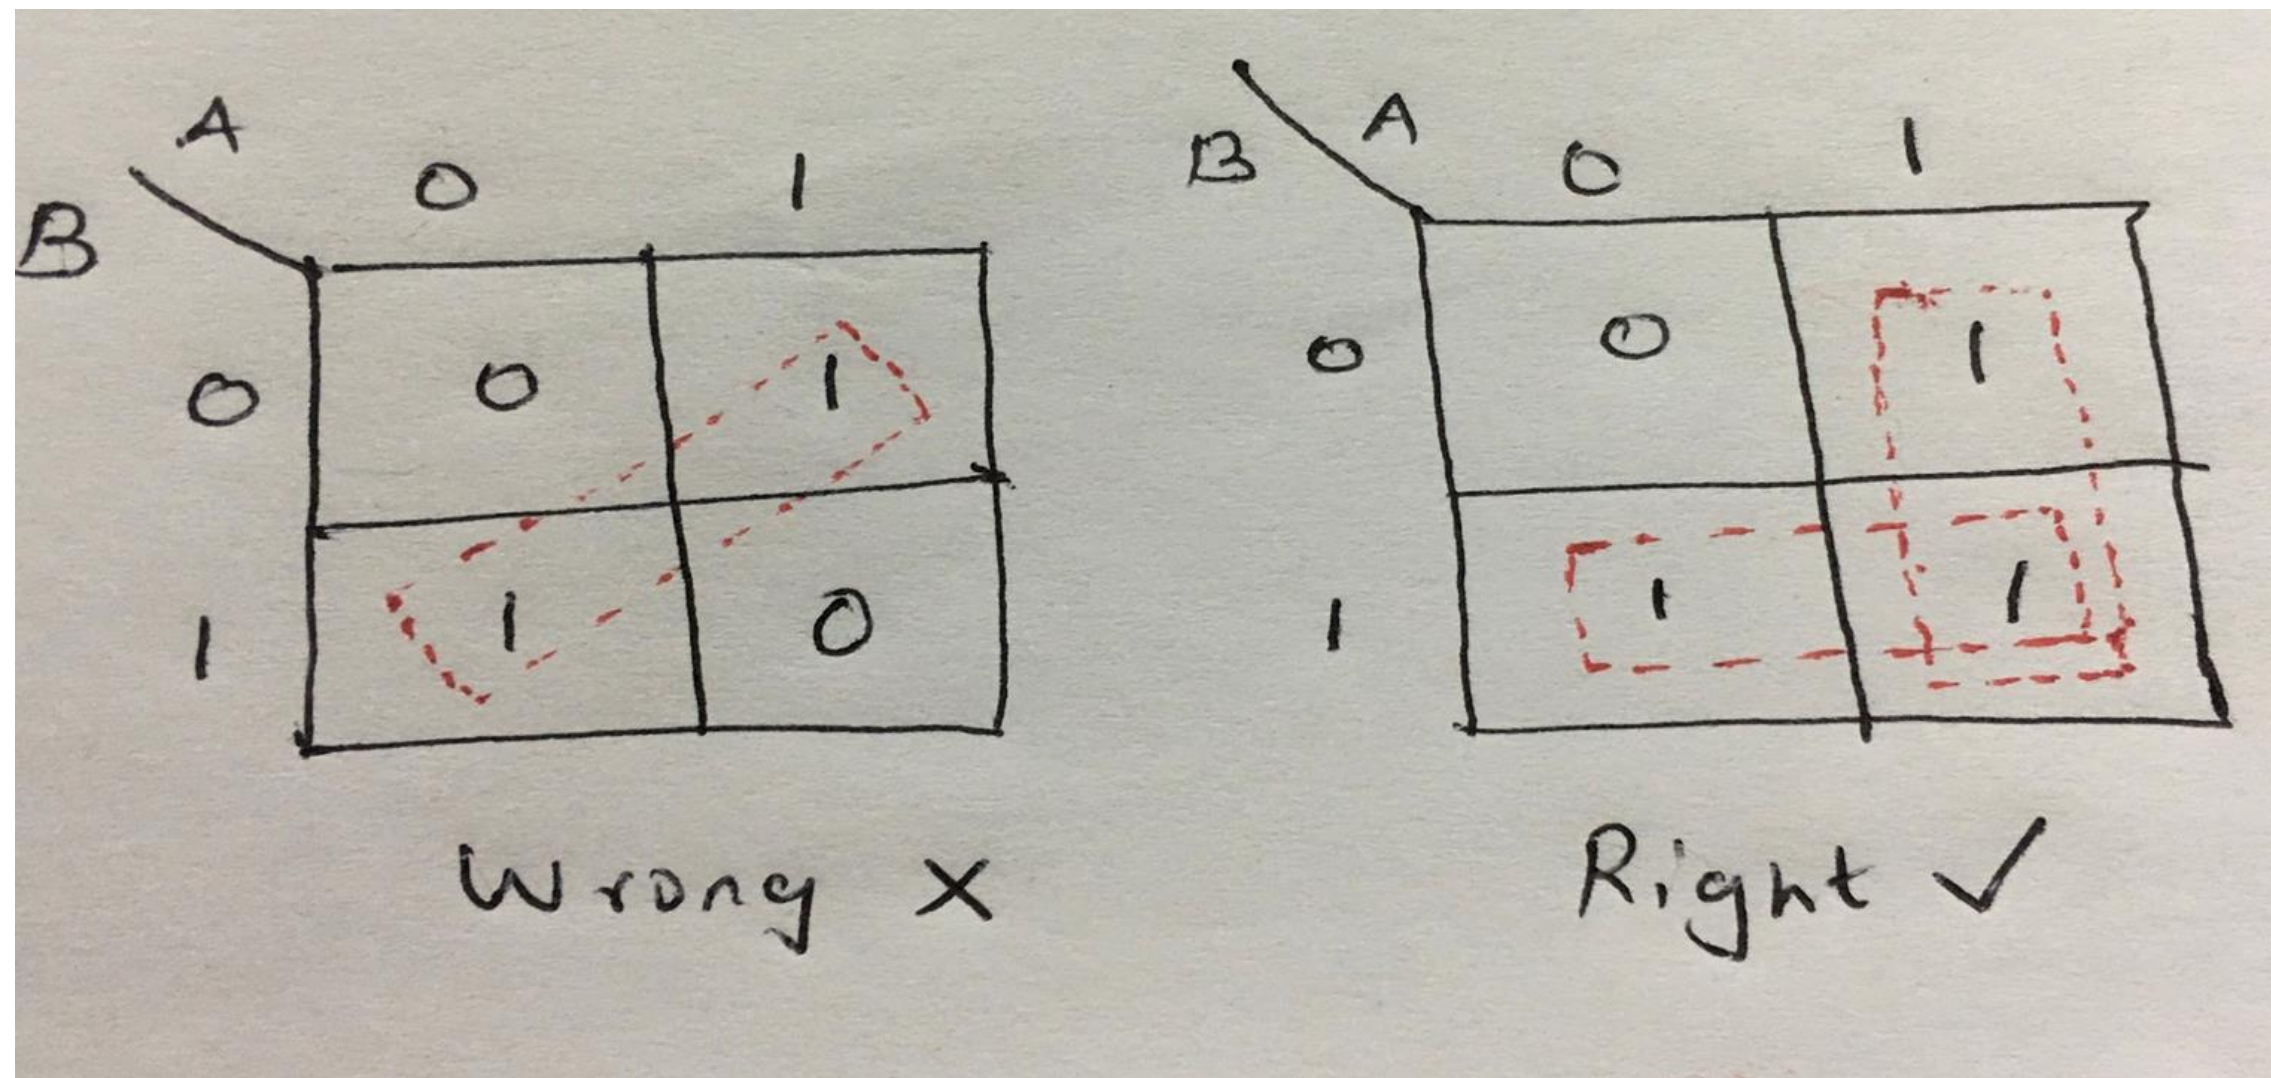 A
B
0 1
0 0 1
1 1 0
Wrong X
A
B
0 1
0 0 1
1 1 1
Right ✓